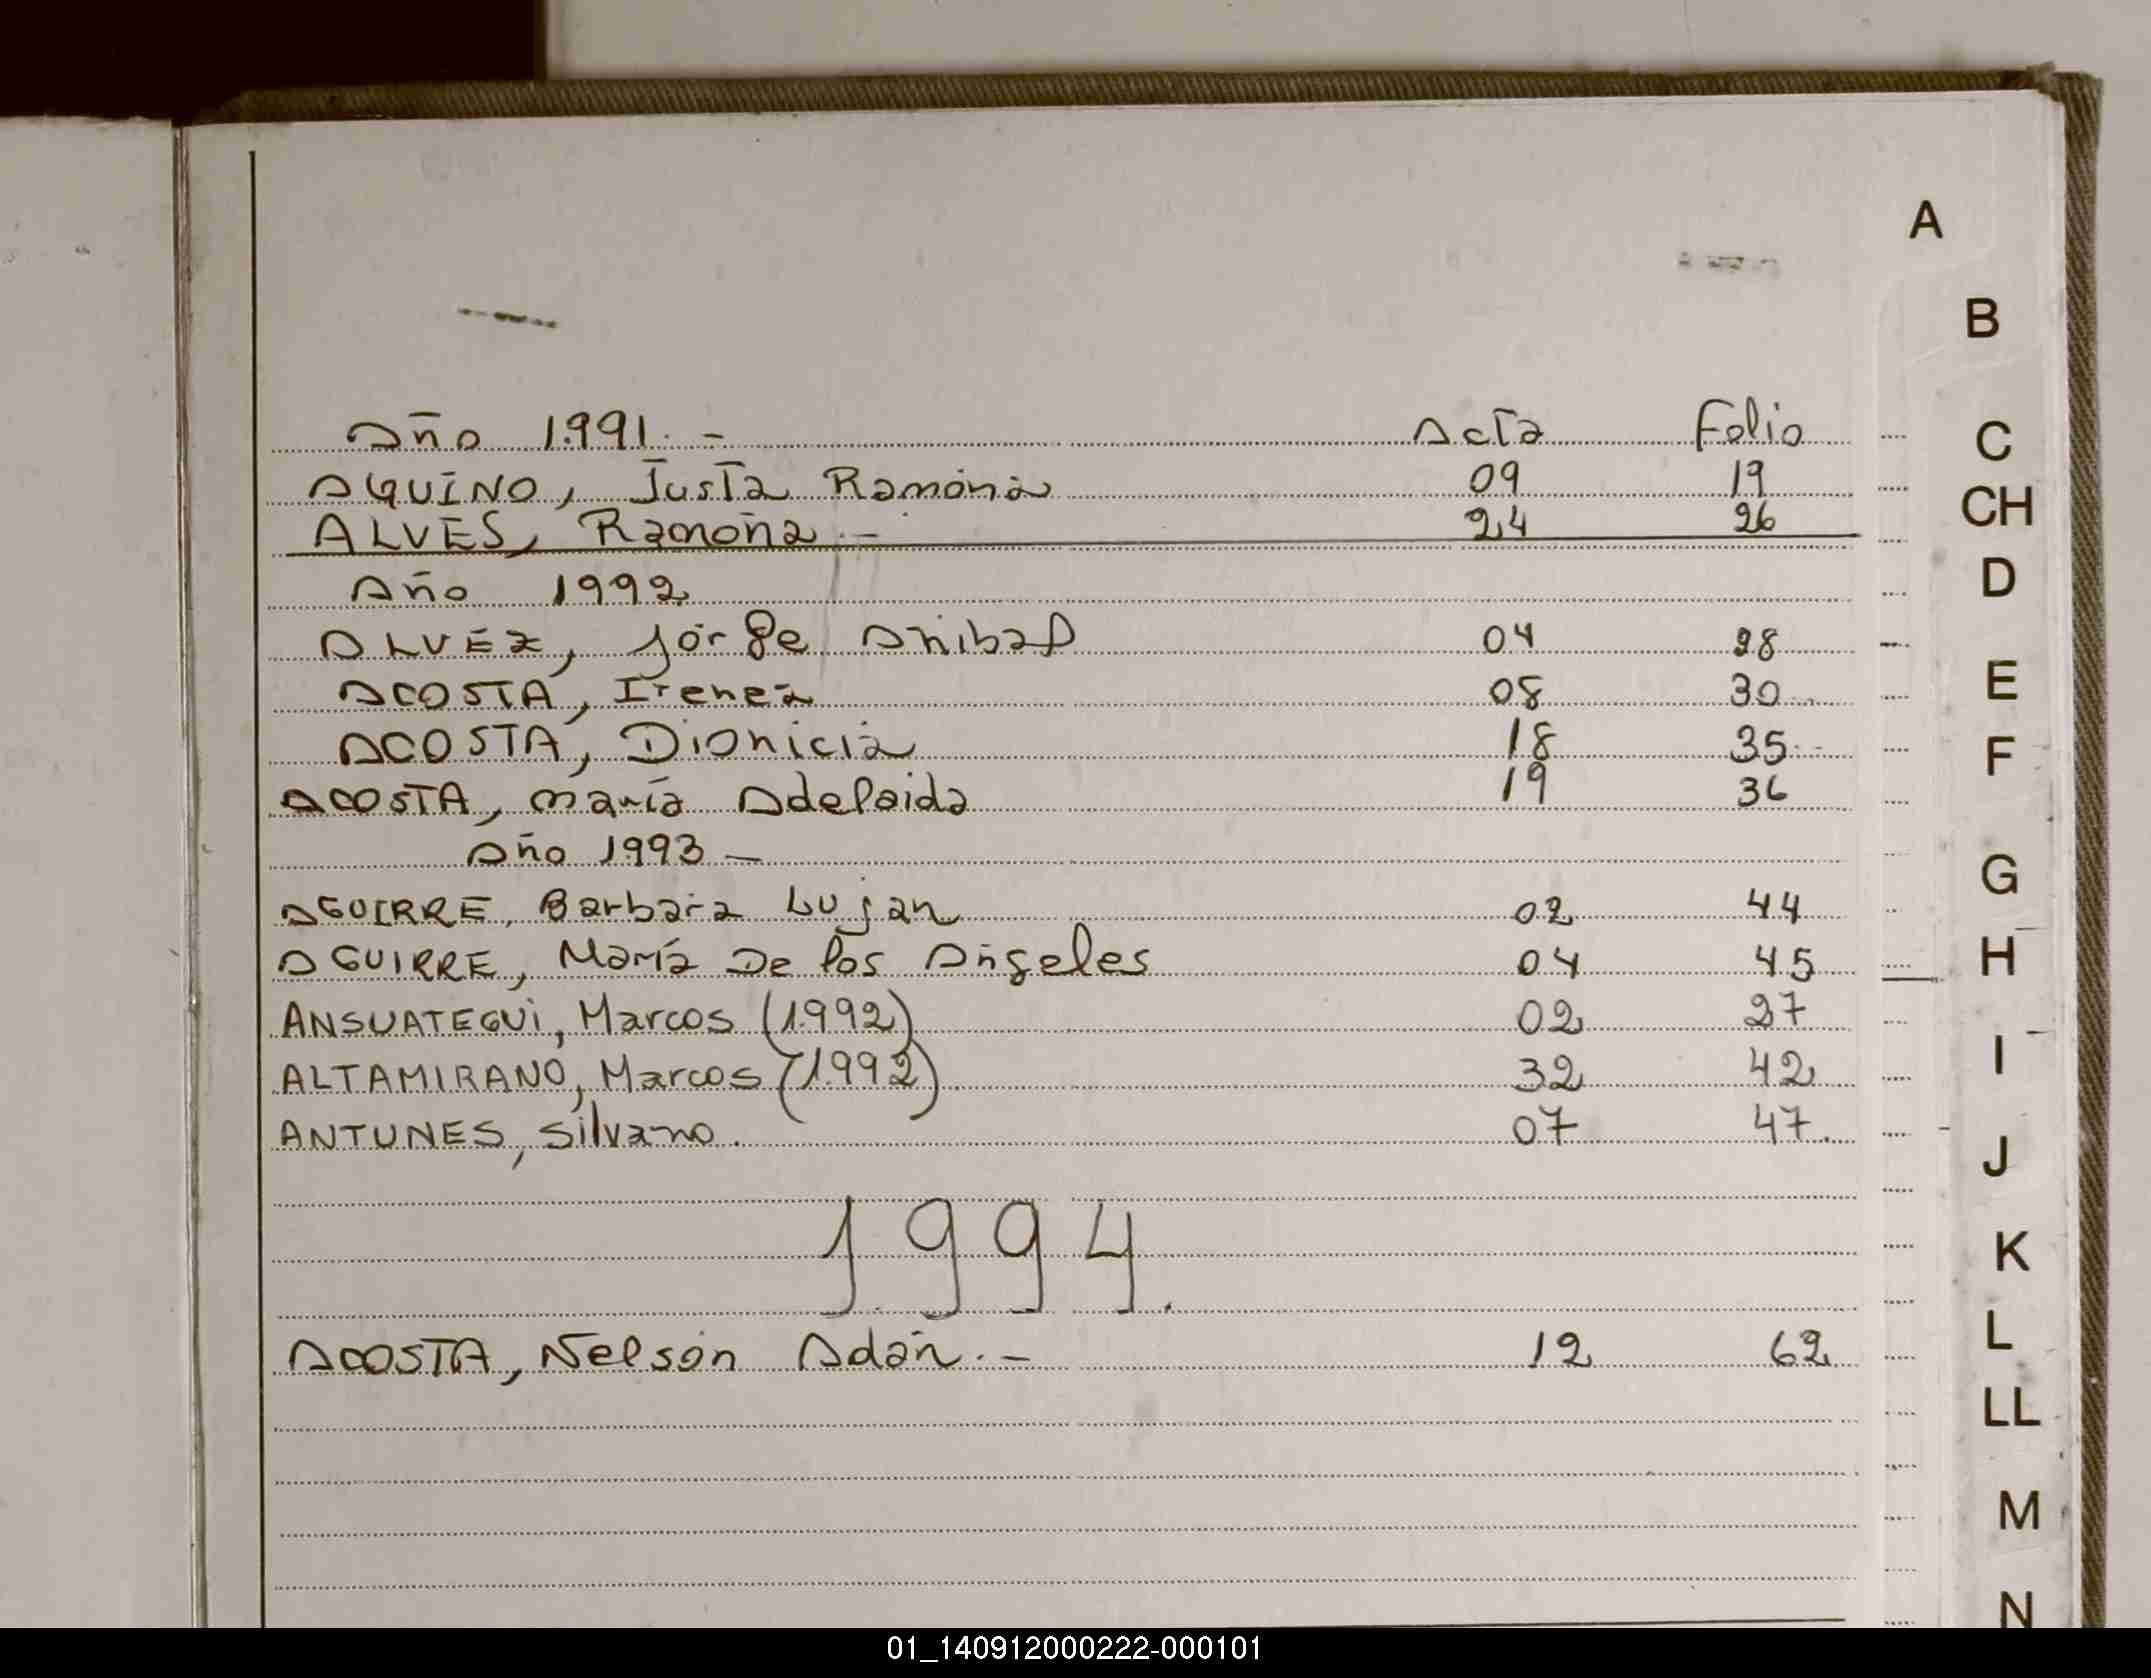 Año 1991.- Acta Folio
AQUINO, Justa Ramona 09 19
ALVES, Ramona.- 24 26
Año 1992
ALVEZ, Jorge Anibal 04 28
ACOSTA, Irenea 08 30
ACOSTA, Dionicia 18 35
ACOSTA, María Adelaida 19 36
Año 1993 -
AGUIRRE, Barbara Lujan 02 44
AGUIRRE, María De los Angeles 04 45
ANSUATEGUI, Marcos (1992) 02 27
ALTAMIRANO, Marcos (1992) 32 42
ANTUNES, Silvano. 07 47.
1994.
ACOSTA, Nelson Adán.- 12 62
A
B
C
CH
D
E
F
G
H
I
J
K
L
LL
M
N
01_140912000222-000101